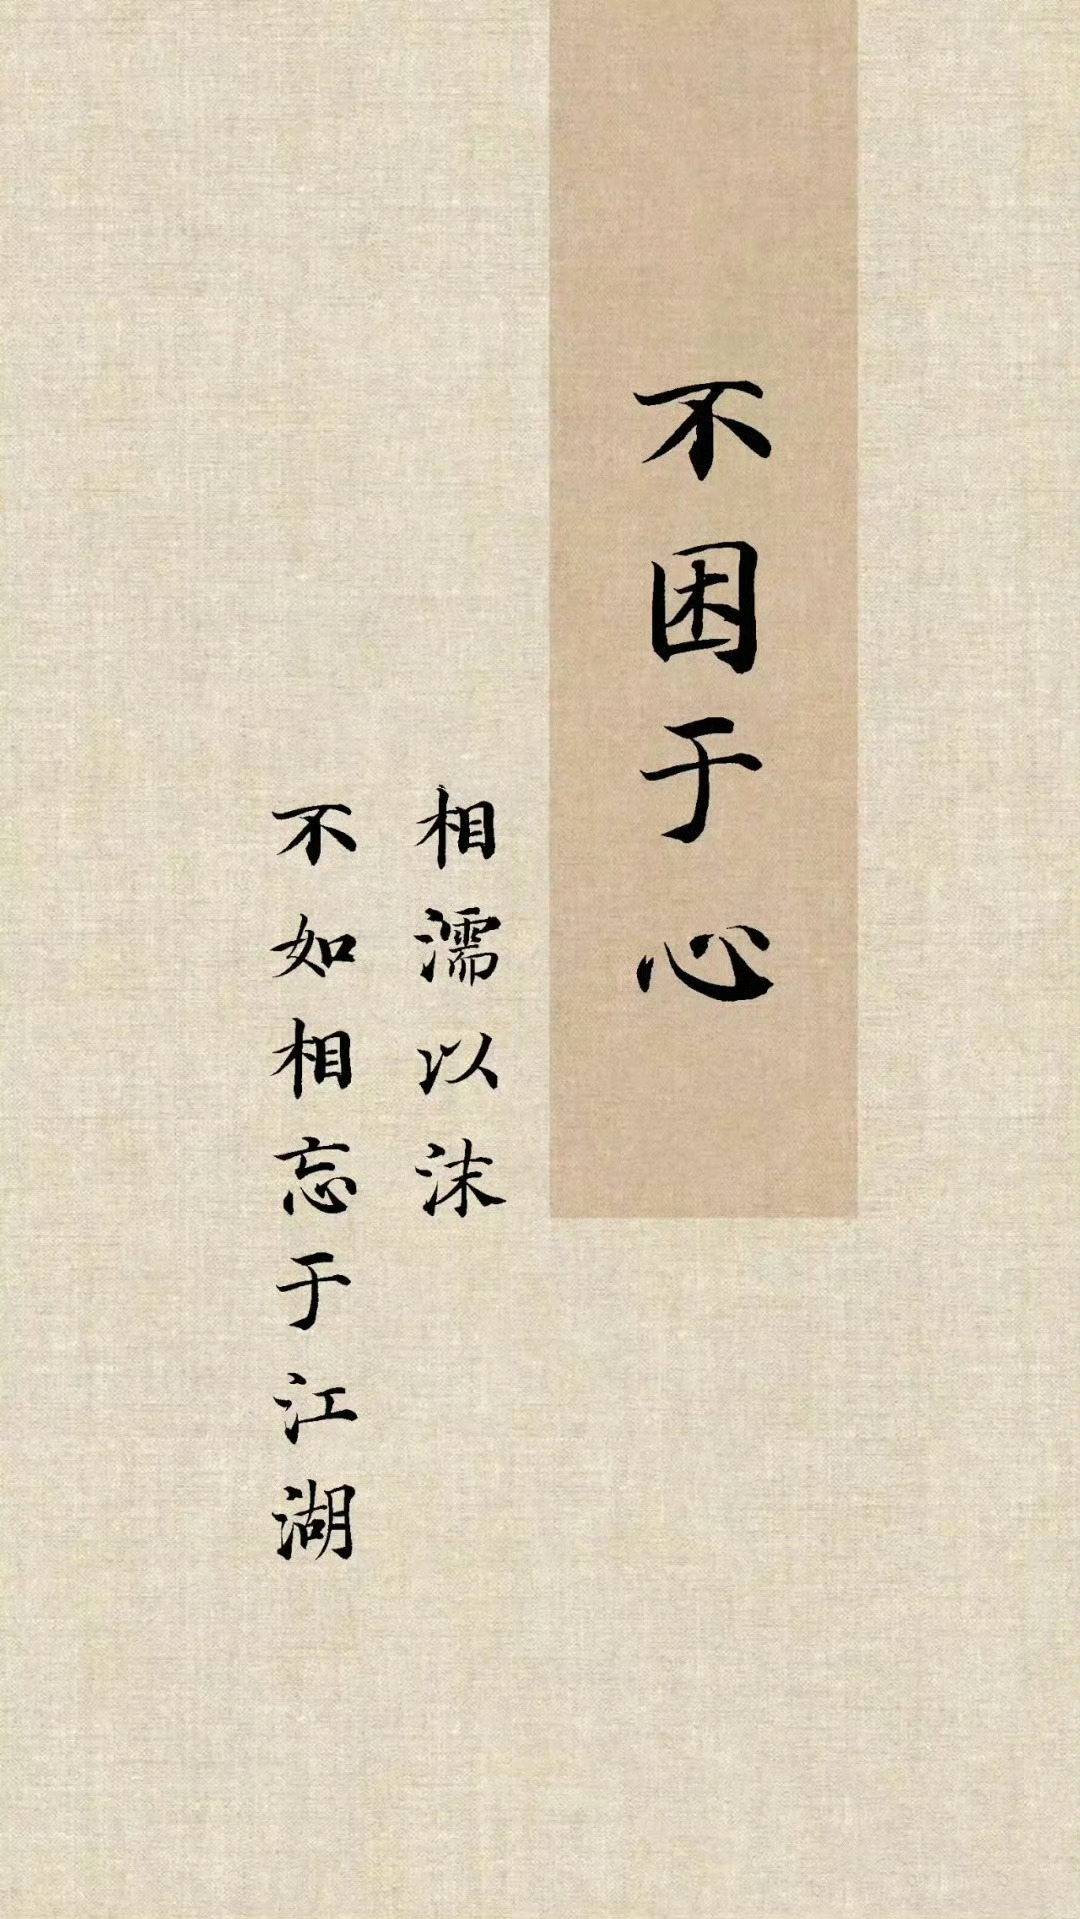 不困于心
相濡以沫
不如相忘于江湖